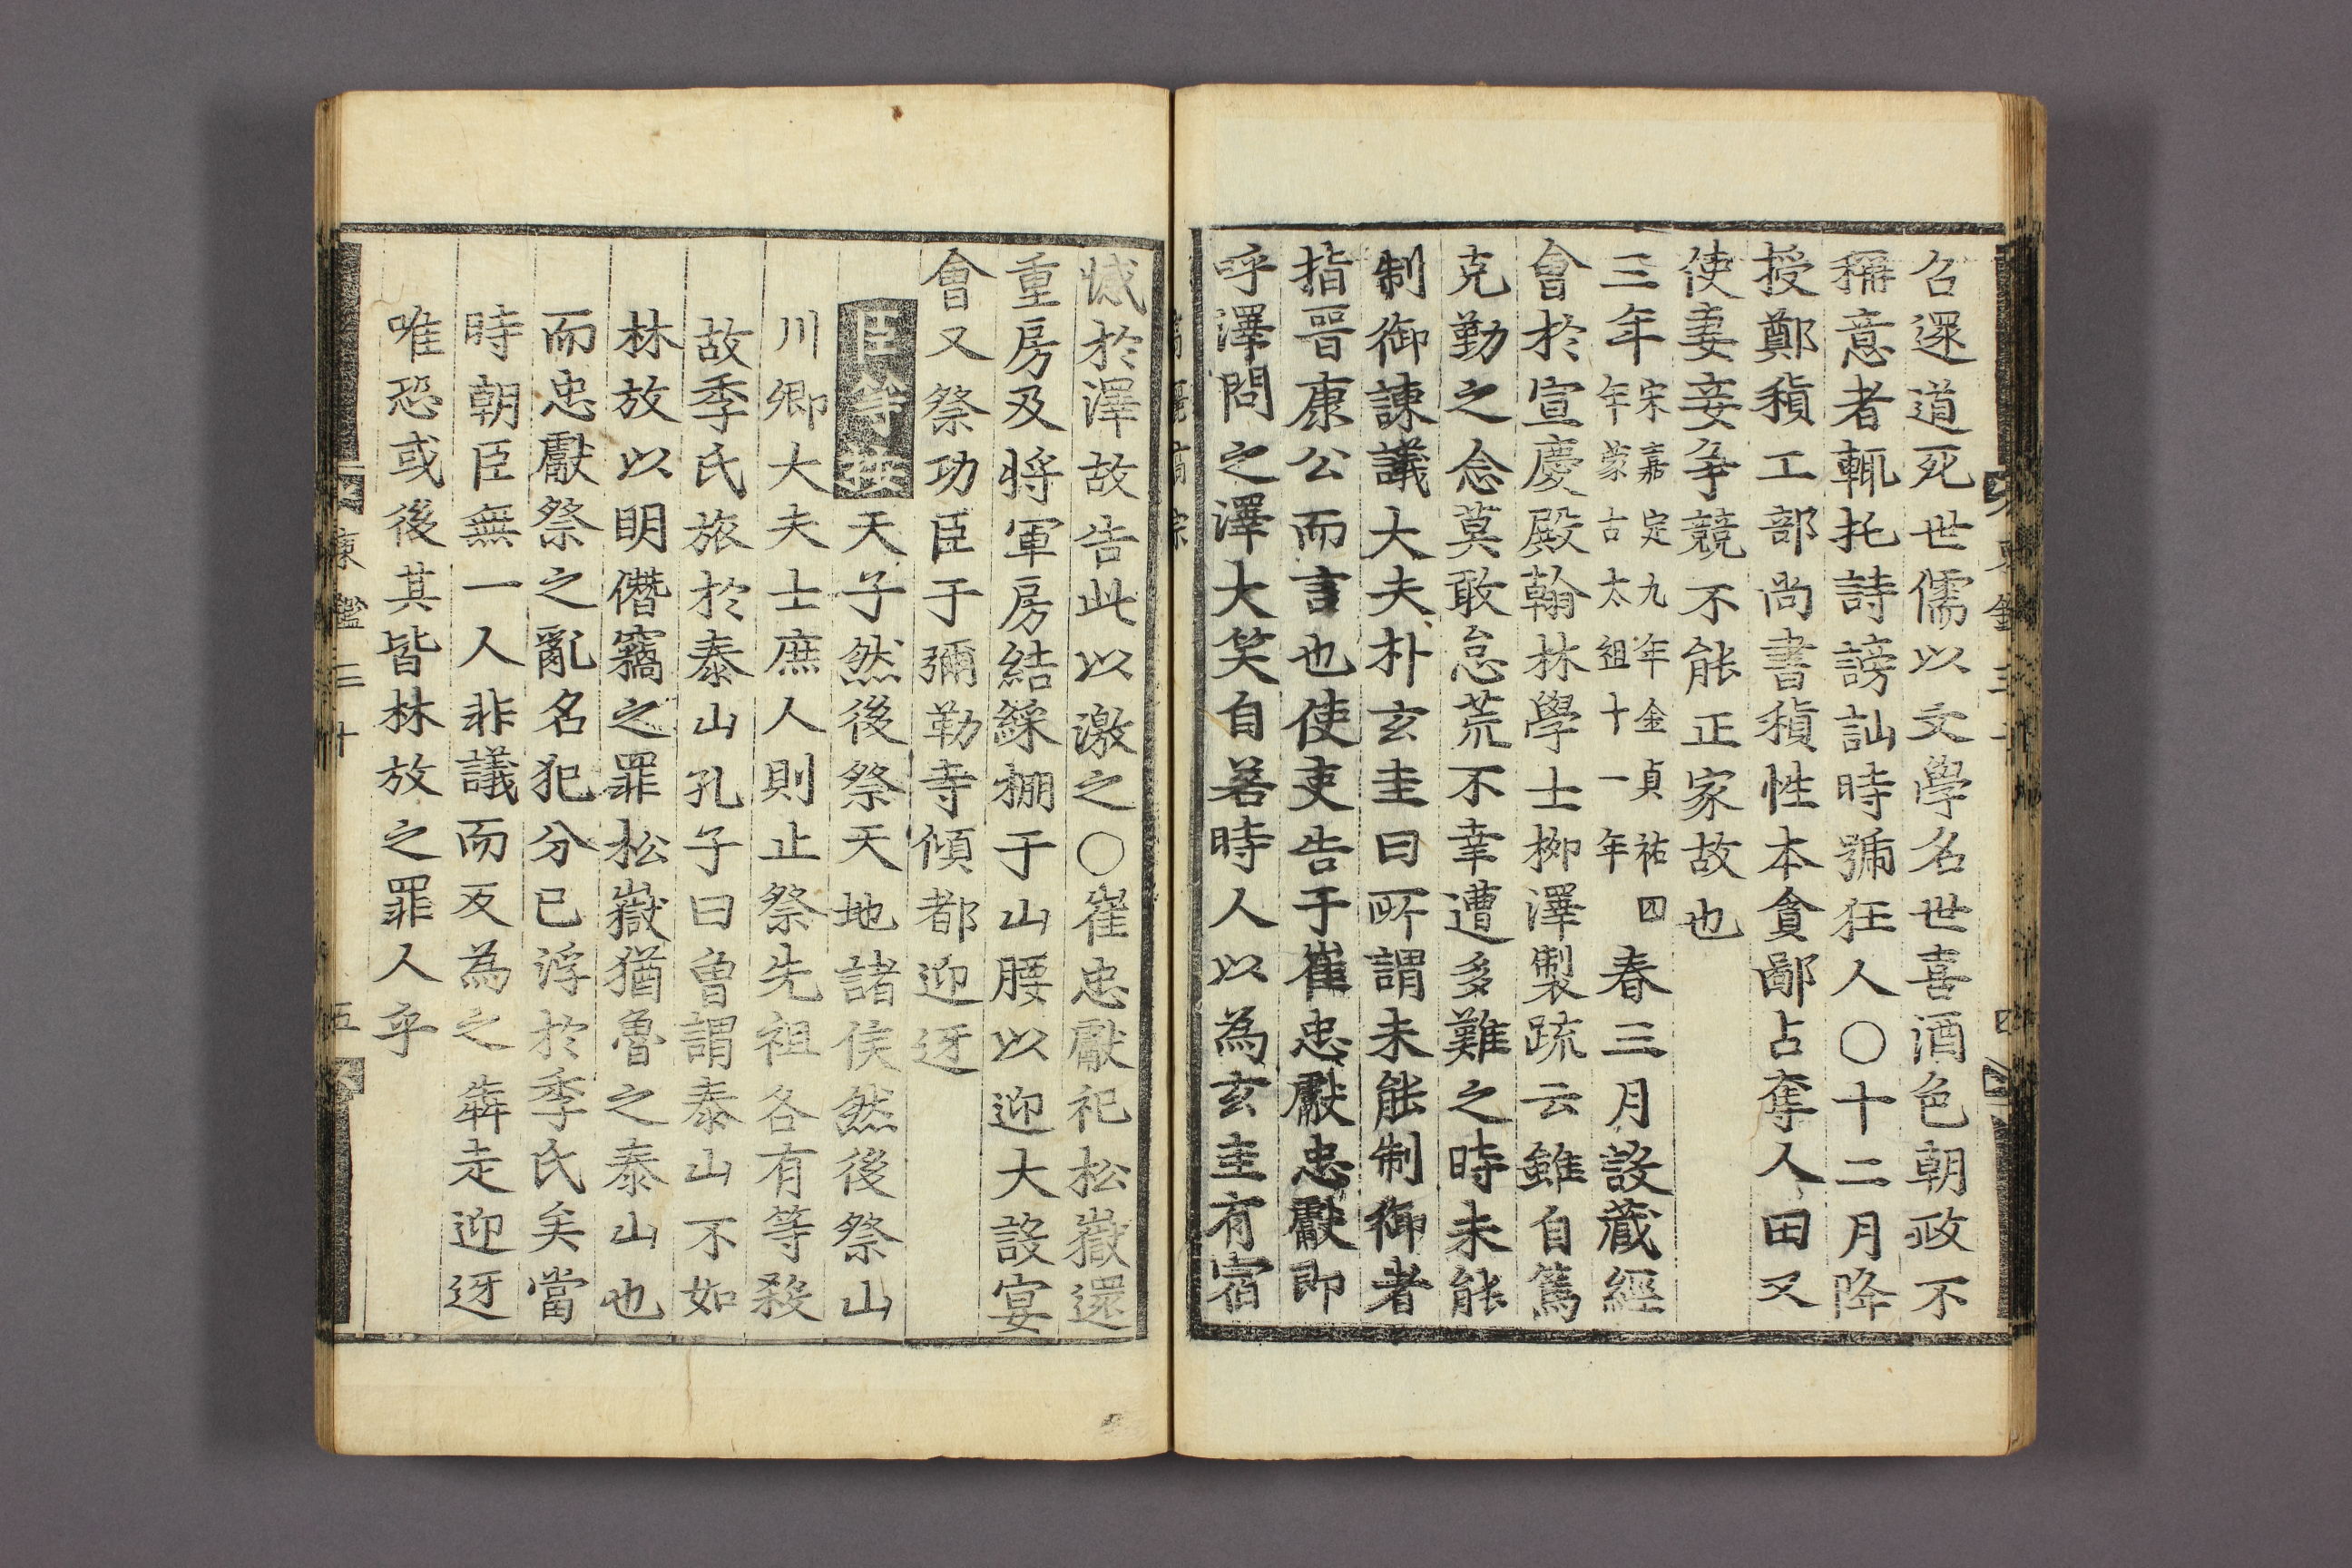 召還道死世儒以文學名世喜酒色朝政不
稱意者輒托詩謗訕時號狂人○十二月降
授鄭稹工部尚書稹性本貪鄙占奪人田又
使妻妾爭競不能正家故也
三年宋嘉定九年金貞祐四年蒙古太祖十一年春三月設藏經
會於宣慶殿翰林學士柳澤製疏云雖自篤
克勤之念莫敢怠荒不幸遭多難之時未能
制御諫議大夫朴玄圭曰所謂未能制御者
指晋康公而言也使吏告于崔忠獻忠獻即
呼澤問之澤大笑自若時人以為玄圭有宿
憾於澤故告此以激之○崔忠獻祀松嶽還
重房及將軍房結綵棚于山腰以迎大設宴
會又祭功臣于彌勒寺傾都迎迓
臣等按天子然後祭天地諸侯然後祭山
川卿大夫士庶人則止祭先祖各有等殺
故季氏旅於泰山孔子曰曾謂泰山不如
林放以明僭竊之罪松嶽猶魯之泰山也
而忠獻祭之亂名犯分已浮於季氏矣當
時朝臣無一人非議而反為之犇走迎迓
唯恐或後其皆林放之罪人乎
東鑑三十 五